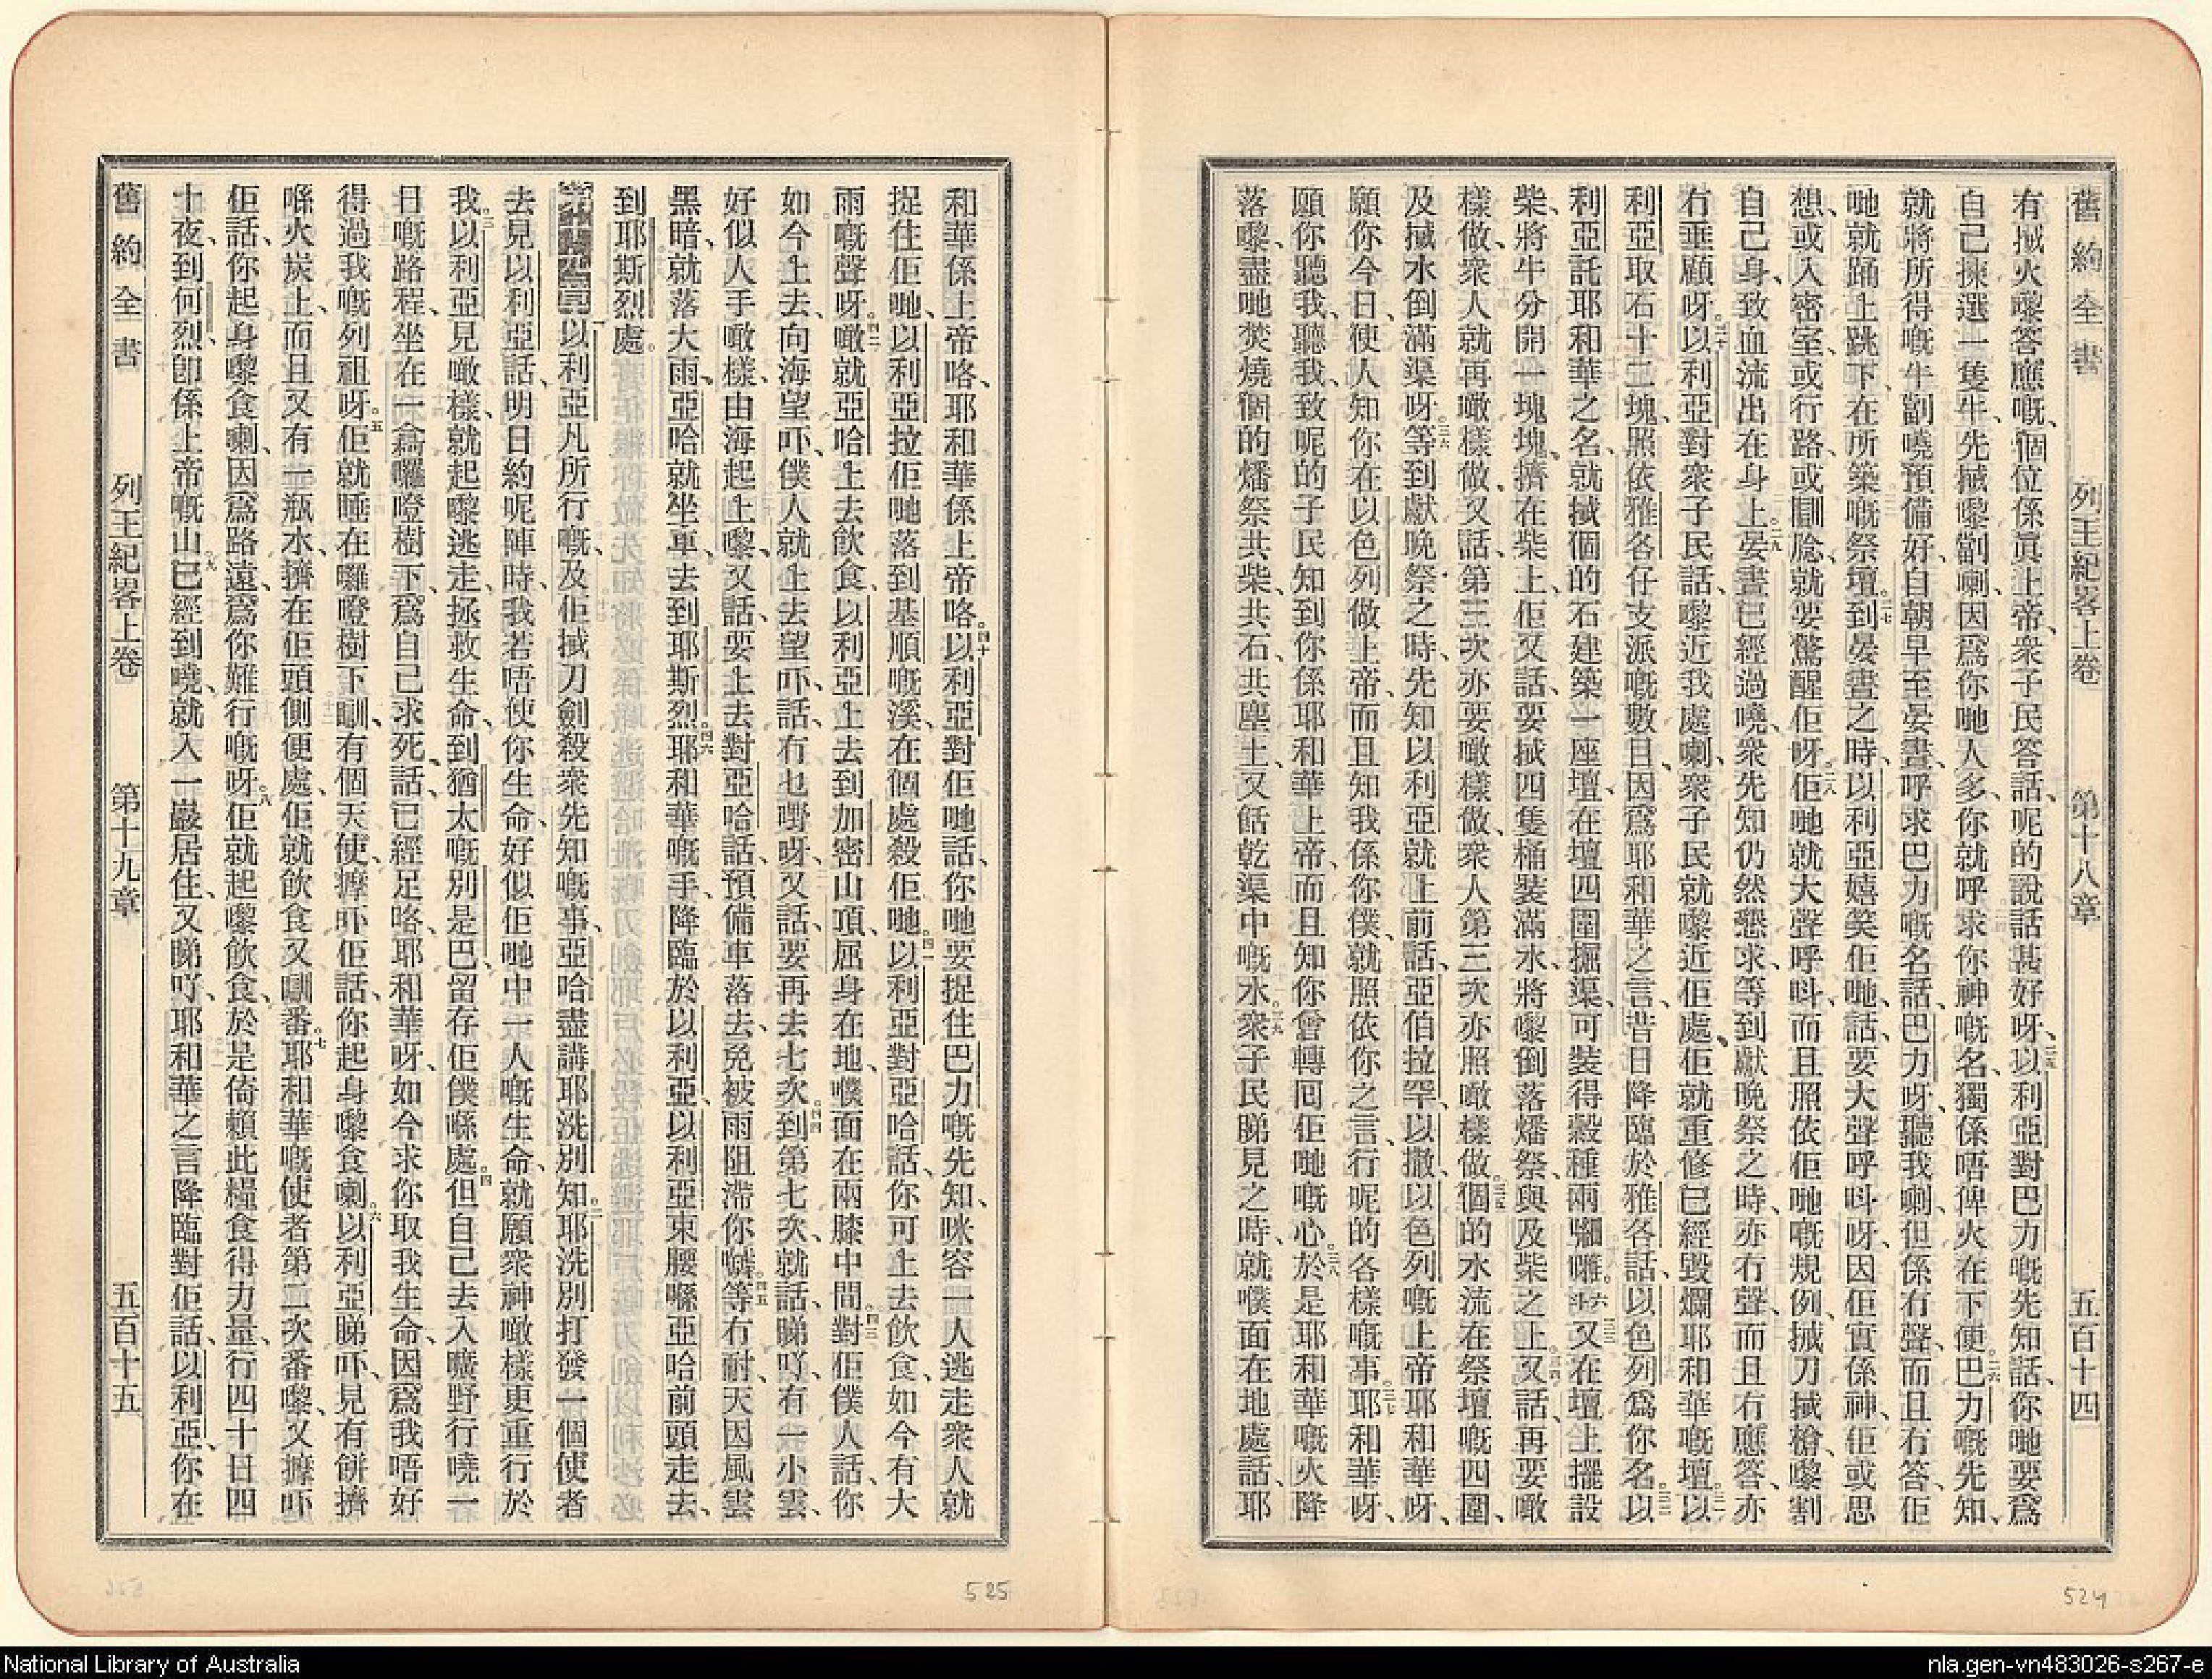 舊約全書 列王紀畧上卷 第十八章 五百十四
有搣火嚟答應嘅、個位係眞上帝、衆子民答話、呢的說話甚好呀、二五以利亞對巴力嘅先知話、你哋要爲
自己揀選一隻牛、先搣嚟劏喇、因爲你哋人多、你就呼求你神嘅名、獨係唔俾火在下便。二六巴力嘅先知、
就將所得嘅牛劏嘵預備好、自朝早至晏晝、呼求巴力嘅名話、巴力呀、聽我喇、但係冇聲、而且冇答、佢
哋就踊上跳下、在所築嘅祭壇。二七到晏晝之時、以利亞嬉笑佢哋、話、要大聲呼呌呀、因佢實係神、佢或思
想、或入密室、或行路、或瞓𥄫、就要驚醒佢呀。二八佢哋就大聲呼呌、而且照依佢哋嘅規例、搣刀搣槍、嚟割
自己身、致血流出在身上。二九晏晝已經過嘵、衆先知仍然懇求、等到獻晚祭之時、亦冇聲、而且冇應答、亦
冇垂顧呀。三十以利亞對衆子民話、嚟近我處喇、衆子民就嚟近佢處、佢就重修已經毀爛耶和華嘅壇。三一以
利亞取石十二塊、照依雅各仔支派嘅數目、因爲耶和華之言、昔日降臨於雅各話、以色列爲你名。三二以
利亞託耶和華之名、就搣個的石建築一座壇、在壇四圍掘渠、可裝得穀種兩𠹌𠻘。斗六三三又在壇上擺設
柴、將牛分開一塊塊、擠在柴上、佢又話、要搣四隻桶裝滿水、將嚟倒落燔祭、與及柴之上。三四又話、再要噉
樣做、衆人就再噉樣做、又話、第三次亦要噉樣做、衆人第三次亦照噉樣做。三五個的水流在祭壇嘅四圍、
及搣水倒滿渠呀。三六等到獻晚祭之時、先知以利亞就上前話、亞伯拉罕、以撒、以色列嘅上帝耶和華呀、
願你今日、使人知你在以色列做上帝、而且知我係你僕、就照依你之言、行呢的各樣嘅事。三七耶和華呀、
願你聽我、聽我、致呢的子民知到你係耶和華上帝、而且知你曾轉囘佢哋嘅心。三八於是耶和華嘅火降
落嚟、盡哋焚燒個的燔祭、共柴、共石、共塵土、又餂乾渠中嘅水。三九衆子民睇見之時、就噗面在地處話、耶
和華係上帝咯、耶和華係上帝咯。四十以利亞對佢哋話、你哋要捉住巴力嘅先知、咪容一人逃走、衆人就
捉住佢哋、以利亞拉佢哋落到基順嘅溪、在個處殺佢哋。四一以利亞對亞哈話、你可上去飲食、如今有大
雨嘅聲呀。四二噉就亞哈上去飲食、以利亞上去到加密山頂、屈身在地、噗面在兩膝中間。四三對佢僕人話、你
如今上去、向海望吓、僕人就上去望吓、話、冇乜嘢呀、又話、要再去七次。四四到第七次、就話、睇吖、有一小雲、
好似人手噉樣、由海起上嚟、又話、要上去對亞哈話、預備車落去、免被雨阻滯你嗻。四五等冇耐、天因風雲
黑暗、就落大雨、亞哈就坐車、去到耶斯烈。四六耶和華嘅手、降臨於以利亞、以利亞束腰喺亞哈前頭走去、
到耶斯烈處。
以利亞凡所行嘅、及佢搣刀劍殺衆先知嘅事、亞哈盡講耶洗別知。二耶洗別打發一個使者
去見以利亞話、明日約呢陣時、我若唔使你生命、好似佢哋中一人嘅生命、就願衆神噉樣更重行於
我。三以利亞見噉樣、就起嚟逃走拯救生命、到猶太嘅別是巴、留存佢僕喺處。四但自己去入曠野行嘵一
日嘅路程、坐在一樖囉噔樹下、爲自己求死、話、已經足咯、耶和華呀、如今求你取我生命、因爲我唔好
得過我嘅列祖呀。五佢就睡在囉噔樹下瞓、有個天使、擦吓佢話、你起身嚟食喇。六以利亞睇吓、見有餅擠
喺火炭上、而且又有一瓶水、擠在佢頭側便處、佢就飲食、又瞓番。七耶和華嘅使者第二次番嚟、又擦吓
佢話、你起身嚟食喇、因爲路遠、爲你難行嘅呀。八佢就起嚟飲食、於是倚賴此糧食得力量、行四十日四
十夜、到何烈、卽係上帝嘅山。九已經到嘵、就入一巖居住、又睇吖、耶和華之言降臨對佢話、以利亞、你在
舊約全書 列王紀畧上卷 第十九章 五百十五
524
525
National Library of Australia
nla.gen-vn483026-s267-e